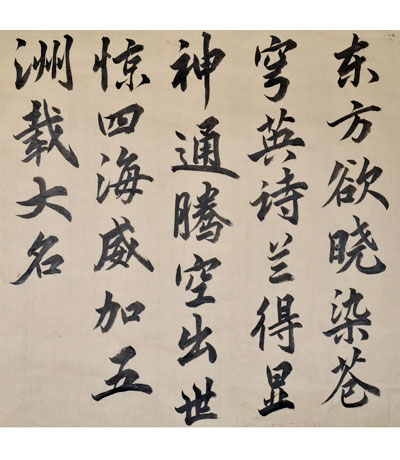 东方欲晓染苍
穹英诗兰得显
神通腾空出世
惊四海威加五
洲载大名